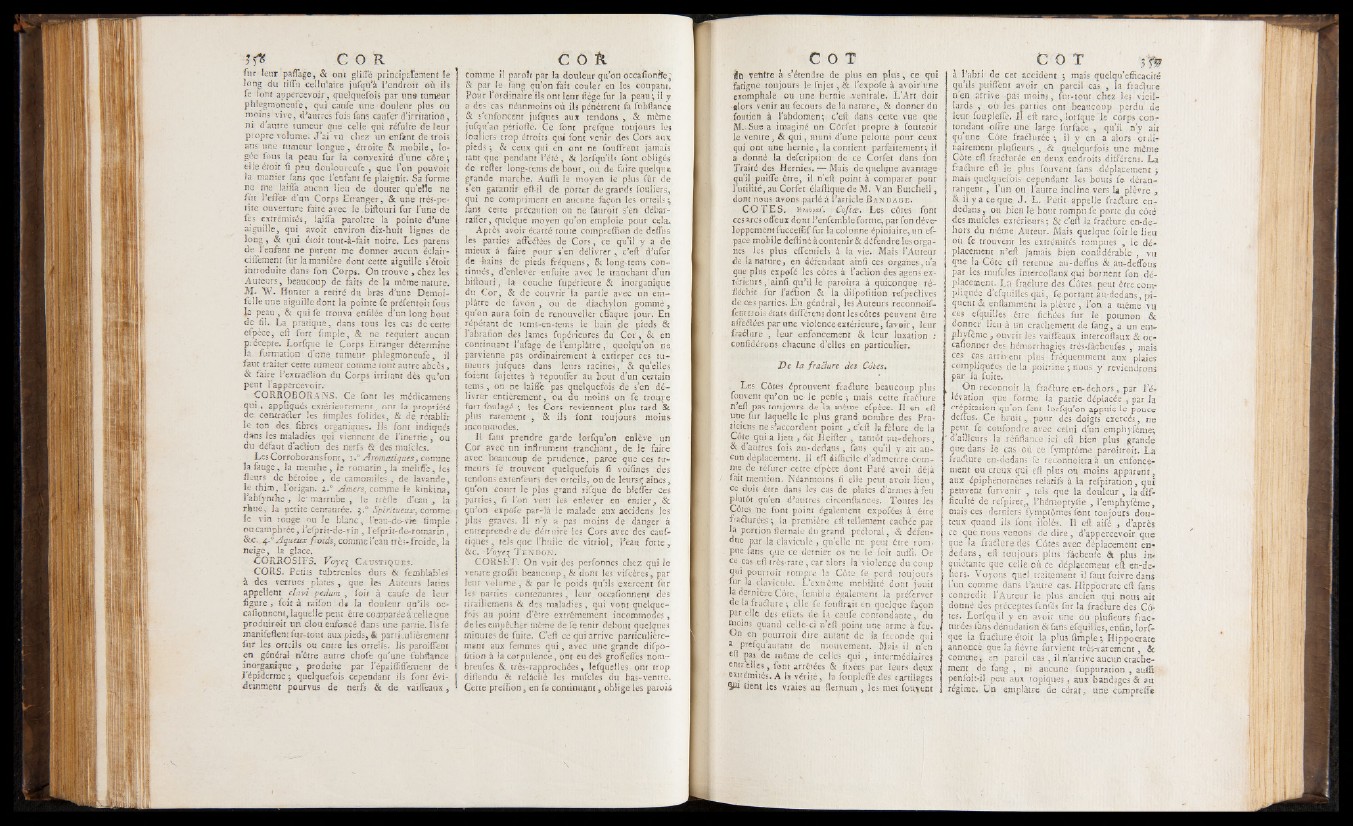 358 COR
ſur leur paſſage, & ont gliſſé principalement le
long du tiſſu cellulaire juſqu'à l'endroit où ils
ſe ſont appercevoir, quelquefois par une tumeur
phlegmoneuſe, qui cauſe une douleur plus ou
moins vive, d'autres fois ſans cauſer d'irritation,
ni d'autre tumeur que celle qui réſulte de leur
propre volume. J'ai vu chez un enfant de trois
ans une tumeur longue, étroite & mobile, lo-
gée ſous la peau ſur la convexité d'une côte;
elle étoit ſi peu douloureuſe, que l'on pouvoit
la manier ſans que l'enfant ſe plaignît. Sa forme
ne me laiſſa aucun lieu de douter qu'elle ne
fût l'effet d'un Corps Etranger, & une très-pe-
tite ouverture faite avec le biſtouri ſur l'une de
ſes extrémités, laiſſa paroître la pointe d'une
aiguille, qui avoit environ dix-huit lignes de
long, & qui étoit tout-à-fait noire. Les parens
de l'enfant ne purent me donner aucun éclair-
ciſſement ſur la manière dont cette aiguille s'étoit
introduite dans ſon Corps. On trouve, chez les
Auteurs, beaucoup de faits de la même nature.
M. W. Hunter a retiré du bras d'une Demoi-
ſelle une aiguille dont la pointe ſe préſentoit ſous
la peau, & qui ſe trouva enfilée d'un long bout
de fil. La pratique, dans tous les cas de cette
eſpèce, eſt fort ſimple, & ne requiert aucun
précepte. Lorſque le Corps Etranger détermine
la formation d'une tumeur phlegmoneuſe, il
faut traiter cette tumeur comme tout autre abcès,
& faire l'extraction du Corps irritant dès qu'on
peut l'appercevoir.
CORROBORANS. Ce ſont les médicamens
qui, appliqués extérieurement, ont la propriété
de contracter les ſimples ſolides, & de rétablir
le ton des fibres organiques. Ils ſont indiqués
dans les maladies qui viennent de l'inertie, ou
du défaut d'action des nerfs & des muſcles.
Les Corroborans ſont, 1.° Aromatiques, comme
la ſauge, la menthe, le romarin, la meliſſe, les
fleurs de bétoine, de camomilles, de lavande,
le thim, l'origan. 2.° Amers, comme le kinkina,
l'abſynthe, le marrube, le trèfle d'eau, la
rhue, la petite centaurée. 3.° Spiritueux, comme
le vin rouge ou le blanc, l'eau-de-vie ſimple
ou camphrée, l'eſprit-de-vin, l'eſprit-de-romarin,
&c. 4.° Aqueux froids, comme l'eau très-froide, la
neige, la glace.
CORROSIFS. Voyez CAUSTIQUES.
CORS. Petits tubercules durs & ſemblables
à des verrues plates, que les Auteurs latins
appellent clavi pedum, ſoit à cauſe de leur
figure, ſoit à raiſon de la douleur qu'ils oc-
caſionnent, laquelle peut être comparée à celle que
produiroit un clou enfoncé dans une partie. Ils ſe
manifeſtent ſur-tout aux pieds, & particulièrement
ſur les orteils ou entre les orteils. Ils paroiſſent
en général n'être autre choſe qu'une ſubſtance
inorganique, produite par l'épaiſſiſſement de
l'épiderme; quelquefois cependant ils ſont évi-
demment pourvus de nerfs & de vaiſſeaux,
COR
comme il paroît par la douleur qu'on occaſionne,
& par le ſang qu'on fait couler en les coupant.
Pour l'ordinaire ils ont leur ſiége ſur la peau; il y
a des cas néanmoins où ils pénètrent ſa ſubſtance
& s'enfoncent juſques aux tendons, & même
juſqu'au périoſte. Ce ſont preſque toujours les
ſouliers trop étroits qui font venir des Cors aux
pieds; & ceux qui en ont ne ſouffrent jamais
tant que pendant l'été, & lorſqu'ils ſont obligés
de reſter long-tems de bout, ou de faire quelque
grande marche. Auſſi le moyen le plus ſûr de
s'en garantir eſt-il de porter de grands ſouliers,
qui ne compriment en aucune façon les orteils;
ſans cette précaution on ne ſauroit s'en débar-
raſſer, quelque moyen qu'on emploie pour cela.
Après avoir écarté toute compreſſion de deſſus
les parties affectées de Cors, ce qu'il y a de
mieux à faire pour s'en délivrer, c'eſt d'uſer
de bains de pieds fréquens, & long-tems con-
tinués, d'enlever enſuite avec le tranchant d'un
biſtouri, la couche ſupérieure & inorganique
du Cor, & de couvrir la partie avec un em-
plâtre de ſavon, ou de diachylon gommé,
qu'on aura ſoin de renouveller chaque jour. En
répétant de tems-en-tems le bain de pieds &
l'abraſion des lames ſupérieures du Cor, & en
continuant l'uſage de l'emplâtre, quoiqu'on ne
parvienne pas ordinairement à extirper ces tu-
meurs juſques dans leurs racines, & qu'elles
ſoient ſujettes à repouſſer au bout d'un certain
tems, on ne laiſſe pas quelquefois de s'en dé-
livrer entièrement, ou du moins on ſe trouve
fort ſoulagé; les Cors reviennent plus tard &
plus rarement, & ils ſont toujours moins
incommodes.
Il faut prendre garde lorſqu'on enlève un
Cor avec un inſtrument tranchant, de le faire
avec beaucoup de prudence, parce que ces tu-
meurs ſe trouvent quelquefois ſi voiſines des
tendons extenſeurs des orteils, ou de leurs gaînes,
qu'on court le plus grand riſque de bleſſer ces
parties, ſi l'on veut les enlever en entier, &
qu'on expoſe par-là le malade aux accidens les
plus graves. Il n'y a pas moins de danger à
entreprendre de détruire les Cors avec des cauſ-
tiques, tels que l'huile de vitriol, l'eau forte,
&c. Voyez TENDON.
CORSET. On voit des perſonnes chez qui le
ventre groſſit beaucoup, & dont les viſcères, par
leur volume, & par le poids qu'ils exercent ſur
les parties contenantes, leur occaſionnent des
tiraillemens & des maladies, qui vont quelque-
fois au point d'être extrêmement incommodes,
de les empêcher même de ſe tenir debout quelques
minutes de ſuite. C'eſt ce qui arrive particulière-
ment aux femmes qui, avec une grande diſpo-
ſition à la corpulence, ont eu des groſſeſſes nom-
breuſes & très-rapprochées, leſquelles ont trop
diſtendu & relâché les muſcles du bas-ventre.
Cette preſſion, en ſe continuant, oblige les parois
COT
du ventre à s'étendre de plus en plus, ce qui
fatigue toujours le ſujet, & l'expoſe à avoir une
exomphale ou une hernie ventrale. L'Art doit
alors venir au ſecours de la nature, & donner du
ſoutien à l'abdomen; c'eſt dans cette vue que
M. Sue a imaginé un Corſet propre à ſoutenir
le ventre, & qui, muni d'une pelotte pour ceux
qui ont une hernie, la contient parfaitement; il
a donné la deſcription de ce Corſet dans ſon
Traité des Hernies. — Mais de quelque avantage
qu'il puiſſe être, il n'eſt point à comparer pour
l'utilité, au Corſet élaſtique de M. Van Butchell,
dont nous avons parlé à l'article BANDAGE.
COTES. Coſtæ. Les côtes ſont
ces arcs oſſeux dont l'enſemble forme, par ſon déve-
loppement ſucceſſif ſur la colonne épiniaire, un eſ-
pace mobile deſtiné à contenir & défendre les orga-
nes les plus eſſentiels à la vie. Mais l'Auteur
de la nature, en défendant ainſi ces organes, n'a
que plus expoſé les côtes à l'action des agens ex-
térieurs, ainſi qu'il le paroîtra à quiconque ré-
fléchit ſur l'action & la diſpoſition reſpectives
de ces parties. En général, les Auteurs reconnoiſ-
ſent trois états différens dont les côtes peuvent être
affectées par une violence extérieure, ſavoir, leur
fracture, leur enfoncement & leur luxation:
conſidérons chacune d'elles en particulier.
De la fracture des Côtes.
Les Côtes éprouvent fracture beaucoup plus
ſouvent qu'on ne le penſe; mais cette fracture
n'eſt pas toujours de la même eſpèce. Il en eſt
une ſur laquelle le plus grand nombre des Pra-
ticiens ne s'accordent point, c'eſt la fêlure de la
Côte qui a lieu, ſoit Heiſter, tantôt au-dehors,
& d'autres fois au-dedans, ſans qu'il y ait au-
cun déplacement. Il eſt difficile d'admettre com-
me de refuſer cette eſpèce dont Paré avoit déjà
fait mention. Néanmoins ſi elle peut avoir lieu,
ce doit être dans les cas de plaies d'armes à feu
plutôt qu'en d'autres circonſtances. Toutes les
Côtes ne ſont point également expoſées à être
fracturées; la première eſt tellement cachée par
la portion ſternale du grand pectoral, & défen-
due par la clavicule, qu'elle ne peut être rom-
pue ſans que ce dernier os ne le ſoit auſſi. Or
ce cas eſt très-rare, car alors la violence du coup
qui pourroit rompre la Côte ſe perd toujours
ſur la clavicule. L'extrême mobilité dont jouit
la dernière Côte, ſemble également la préſerver
de la fracture, elle ſe ſouſtrait en quelque façon
par elle des effets de la cauſe contondante, du
moins quand celle-ci n'eſt point une arme à feu.
On en pourroit dire autant de la ſeconde qui
a preſqu'autant de mouvement. Mais il n'en
eſt pas de même de celles qui, intermédiaires
entr'elles, ſont arrêtées & fixées par leurs deux
extrémités. A la vérité, la ſoupleſſe des cartilages
qui tient les vraies au ſternum, les met ſouvent
COT 359
à l'abri de cet accident; mais quelqu'efficacité
qu'ils puiſſent avoir en pareil cas, la fracture
n'en arrive pas moins, ſur-tout chez les vieil-
lards, où les parties ont beaucoup perdu de
leur ſoupleſſe. Il eſt rare, lorſque le corps con-
tondant offre une large ſurface, qu'il n'y ait
qu'une Côte fracturée; il y en a alors ordi-
nairement pluſieurs, & quelquefois une même
Côte eſt fracturée en deux endroits différens. La
fracture eſt le plus ſouvent ſans déplacement;
mais quelquefois cependant les bouts ſe déran-
rangent, l'un ou l'autre incline vers la plèvre,
& il y a ce que J. L. Petit appelle fracture en-
dedans, ou bien le bout rompu ſe porte du côté
des muſcles extérieurs; & c'eſt la fracture en-de-
hors du même Auteur. Mais quelque ſoit le lieu
où ſe trouvent les extrémités rompues, le dé-
placement n'eſt jamais bien conſidérable, vu
que la Côte eſt retenue au-deſſus & au-deſſous
par les muſcles intercoſtaux qui bornent ſon dé-
placement. La fracture des Côtes peut être com-
pliquée d'eſquilles qui, ſe portant au-dedans, pi-
quent & enflamment la plèvre, l'on a même vu
ces eſquilles être fichées ſur le poumon &
donner lieu à un crachement de ſang, à un em-
phyſème, ouvrir les vaiſſeaux intercoſtaux & oc-
caſionner des hémorrhagies très-fâcheuſes, mais
ces cas arrivent plus fréquemment aux plaies
compliquées de la poitrine; nous y reviendrons
par la ſuite.
On reconnoît la fracture en-dehors, par l'é-
lévation que forme la partie déplacée, par la
crépitation qu'on ſent lorſqu'on appuie le pouce
deſſus. Ce bruit, pour des doigts exercés, ne
peut ſe confondre avec celui d'un emphyſème;
d'ailleurs la réſiſtance ici eſt bien plus grande
que dans le cas où ce ſymptôme paroîtroit. La
fracture en-dedans ſe reconnoîtra à un enfonce-
ment ou creux qui eſt plus ou moins apparent,
aux épiphenomènes relatifs à la reſpiration, qui
peuvent ſurvenir, tels que la douleur, la dif-
ficulté de reſpirer, l'hémoptyſie, l'emphyſème,
mais ces derniers ſymptômes ſont toujours dou-
teux quand ils ſont iſolés. Il eſt aiſé, d'après
ce que nous venons de dire, d'appercevoir que
que la fracture des Côtes avec déplacement en-
dedans, eſt toujours plus fâcheuſe & plus in-
quiétante que celle où ce déplacement eſt en-de-
hors. Voyons quel traitement il faut ſuivre dans
l'un comme dans l'autre cas. Hippocrate eſt ſans
contredit l'Auteur le plus ancien qui nous ait
donné des préceptes ſenſés ſur la fracture des Cô-
tes. Lorſqu'il y en avoit une ou pluſieurs frac-
turées ſans dénudation & ſans eſquilles, enfin, lorſ-
que la fracture étoit la plus ſimple; Hippocrate
annonce que la fièvre ſurvient très-rarement, &
comme, en pareil cas, il n'arrive aucun crache-
ment de ſang, ni aucune ſuppuration, auſſi
penſoit-il peu aux topiques, aux bandages & au
régime. Un emplâtre de cérat, une compreſſe